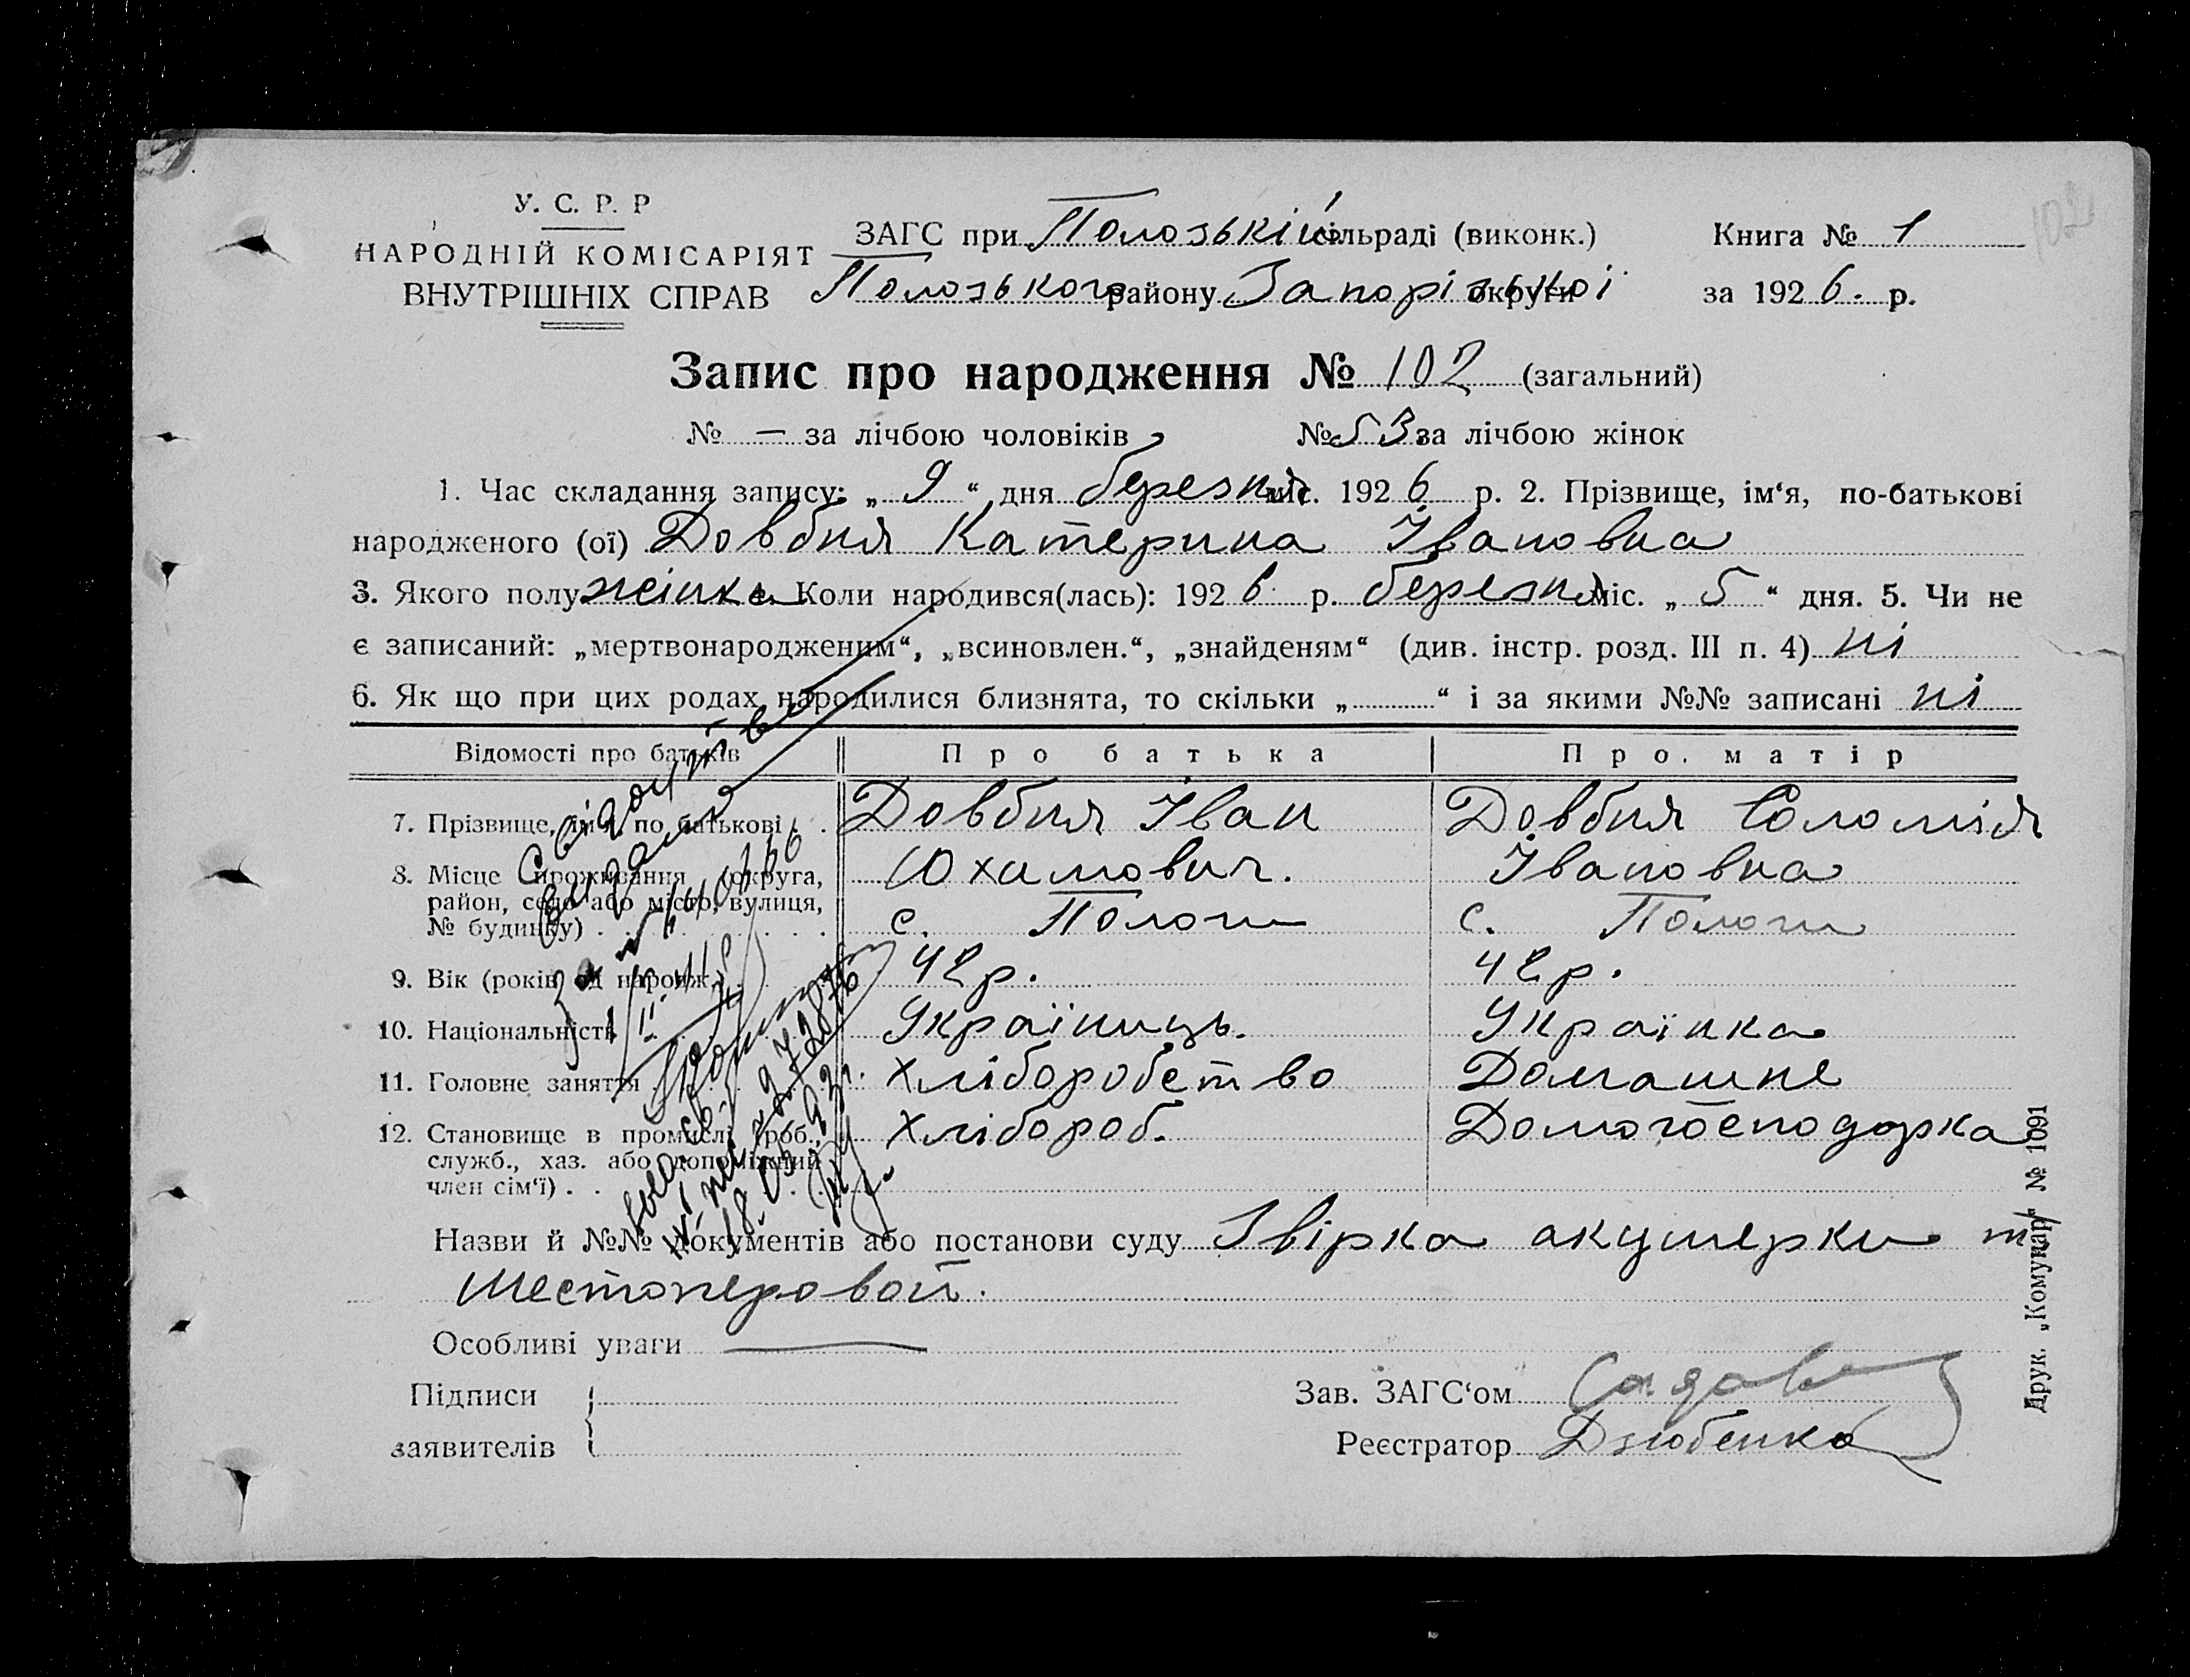 У. С. Р. Р
НАРОДНІЙ КОМІСАРІЯТ
ВНУТРІШНІХ СПРАВ
ЗАГС при Полозькій сільраді (виконк.)
Полозького району Запорізької округи
Книга № 1
за 1926. р.
102
Запис про народження № 102 (загальний)
№ — за лічбою чоловіків № 53 за лічбою жінок
1. Час складання запису: „ 9 “ дня березня міс. 1926 р. 2. Прізвище, ім‘я, по-батькові
народженого (ої) Довбня Катерина Івановна
3. Якого полу жінка Коли народився(лась): 1926 р. березня міс. „ 5 “ дня. 5. Чи не
є записаний: „мертвонародженим“, „всиновлен.“, „знайденям“ (див. інстр. розд. III п. 4) ні
6. Як що при цих родах народилися близнята, то скільки „ “ і за якими №№ записані ні
Відомості про батьків Про батька Про. матір
7. Прізвище, ім‘я, по батькові . . Довбня Іван Довбня Соломія
8. Місце проживання (округа, Юхимович. Івановна
район, село або місто, вулиця,
№ будинку) . . с. Пологи с. Пологи
9. Вік (років од народж.) 42р. 42р.
10. Національність Україниць. Українка
11. Головне заняття . Хліборобство Домашнє
12. Становище в промислі (роб., Хлібороб. Домогосподарка
служб., хаз. або допоміжний
член сім‘ї) . .
Свідоцтво
видано
Назви й №№ документів або постанови суду Звірка акушерки
Шестоперовой.
Особливі уваги —
Підписи
заявителів
Зав. ЗАГС‘ом
Реєстратор Дзюбенко
Друк. „Комунар“ № 1091